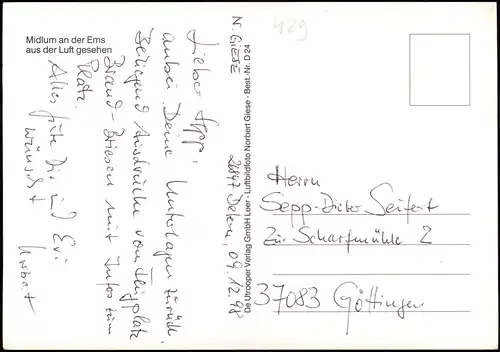 Midlum an der Ems
aus der Luft gesehen
489
N. GIESE
De Utrooper Verlag GmbH Leer - Luftbildfoto Norbert Giese - Best.-Nr. D 24
2847 Detern, 09.12.98
Lieber Sepp,
anbei Deine Unterlagen zurück.
Beiliegend Ausdrücke vom Flugplatz
Brand-Briesen mit Infos zum
Platz.
Alles gute Dir und Evi
wünscht
Norbert
Herrn
Sepp-Dieter Seifert
Zur Scharfmühle 2
37083 Göttingen